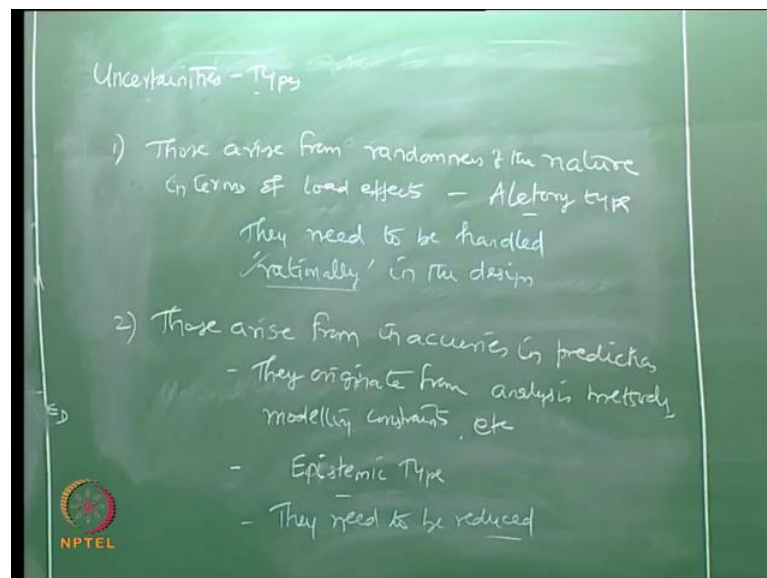 Uncertainties - Types
1) Those arise from randomness of the nature
in terms of load effects - Aletory type
They need to be handled
'rationally' in the design
2) Those arise from inaccuries in prediction
- They originate from analysis methods,
modelling constraints, etc
- Epistemic Type
- They need to be reduced
NPTEL